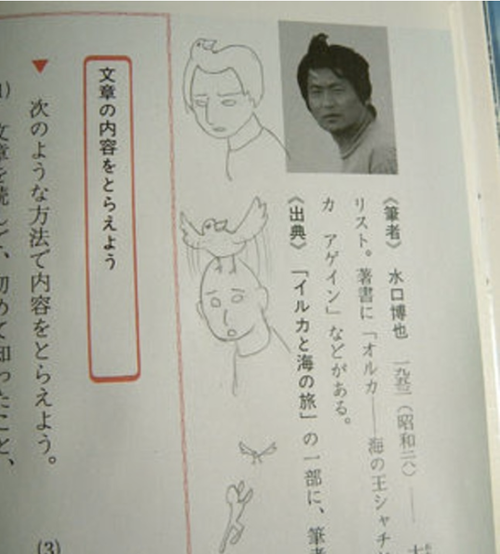 《筆者》 水口博也 一九五三(昭和二八)――
リスト。著書に「オルカ――海の王シャチ
カ アゲイン」などがある。
《出典》 「イルカと海の旅」の一部に、筆者
文章の内容をとらえよう
▼ 次のような方法で内容をとらえよう。
文章を読んで、初めて知ったこと、
(3)